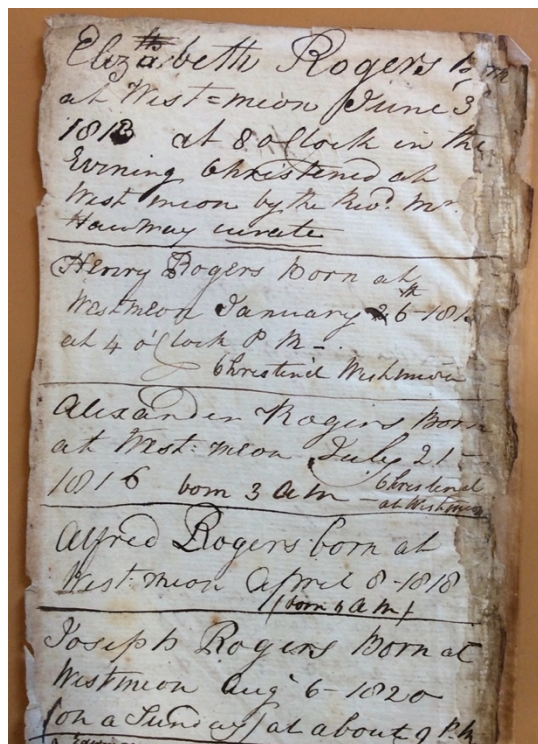 Elizabeth Rogers born
at West=meon June 3
1813 at 8 o Clock in the
Evening Christened at
West meon by the Revd. Mr.
curate
Henry Rogers Born at
Westmeon January 26th 181
at 4 o'Clock P M -
Christen'd Westmeon
Alexander Rogers Born
at West: meon July 21 -
1816 born 3 A M Christend
at Westmeon
Alfred Rogers born at
West. meon April 8 - 1818
(born 6 A M)
Joseph Rogers Born at
Westmeon Aug 6 - 1820
(on a Sunday) at about 9 P.M